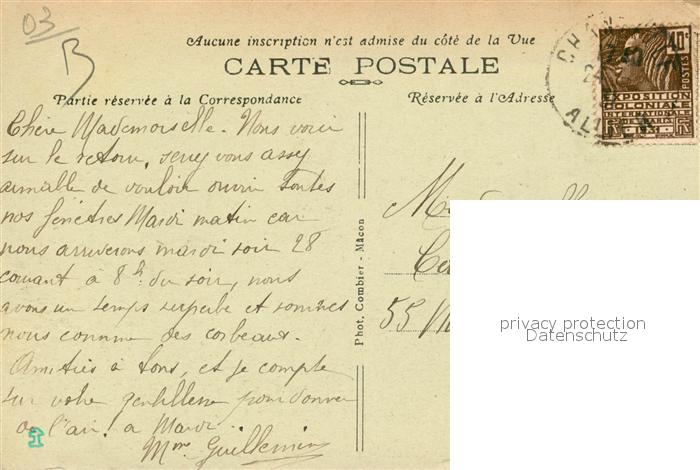 03
B
Aucune inscription n'est admise du côté de la Vue
CARTE POSTALE
Partie réservée à la Correspondance
Réservée à l'Adresse
40c
EXPOSITION
COLONIALE
INTERNATIONALE
ALLIER
Chère Mademoiselle. Nous voici
sur le retour, serez vous assez
aimable de vouloir ouvrir toutes
nos fenêtres Mardi matin car
nous arriverons mardi soir 28
courant à 8h. du soir, nous
avons un temps superbe et sommes
nous comme des corbeaux.
Amitiés à tous, et je compte
sur votre gentillesse pour donner
de l'air! a Mardi.
Mme Guillemin
Phot. Combier - Mâcon
55
privacy protection
Datenschutz